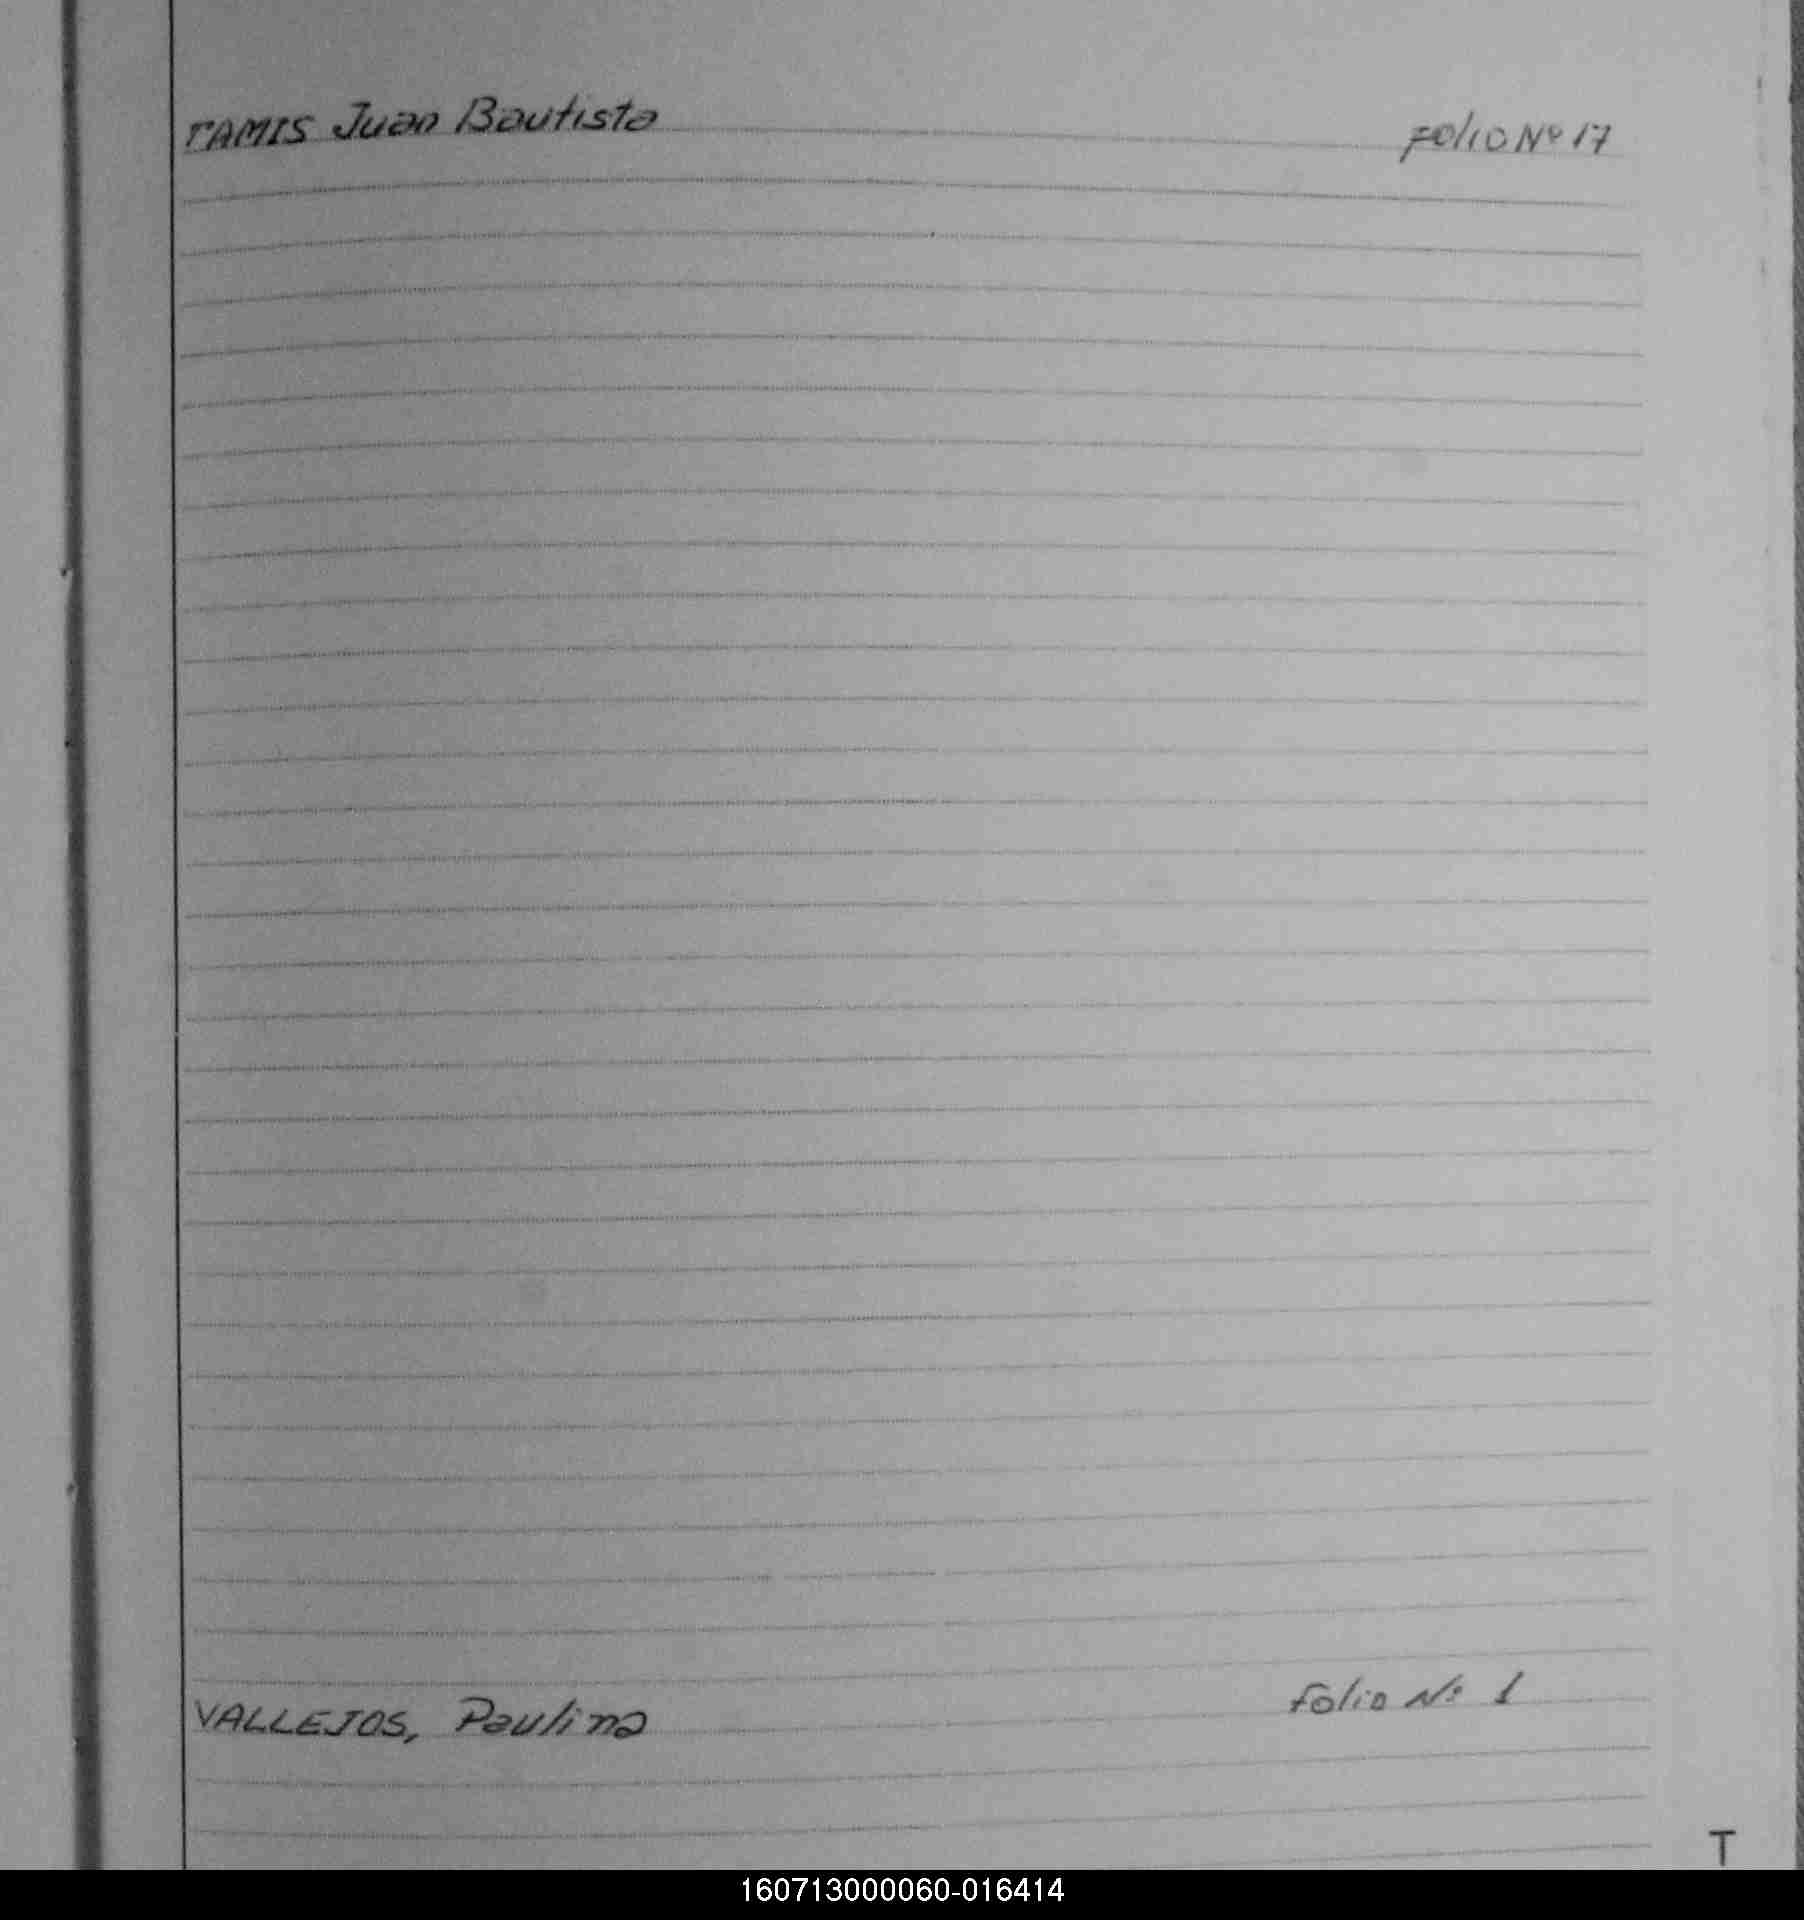 TAMIS Juan Bautista Folio Nº 17
VALLEJOS, Paulina Folio Nº 1
T
160713000060-016414